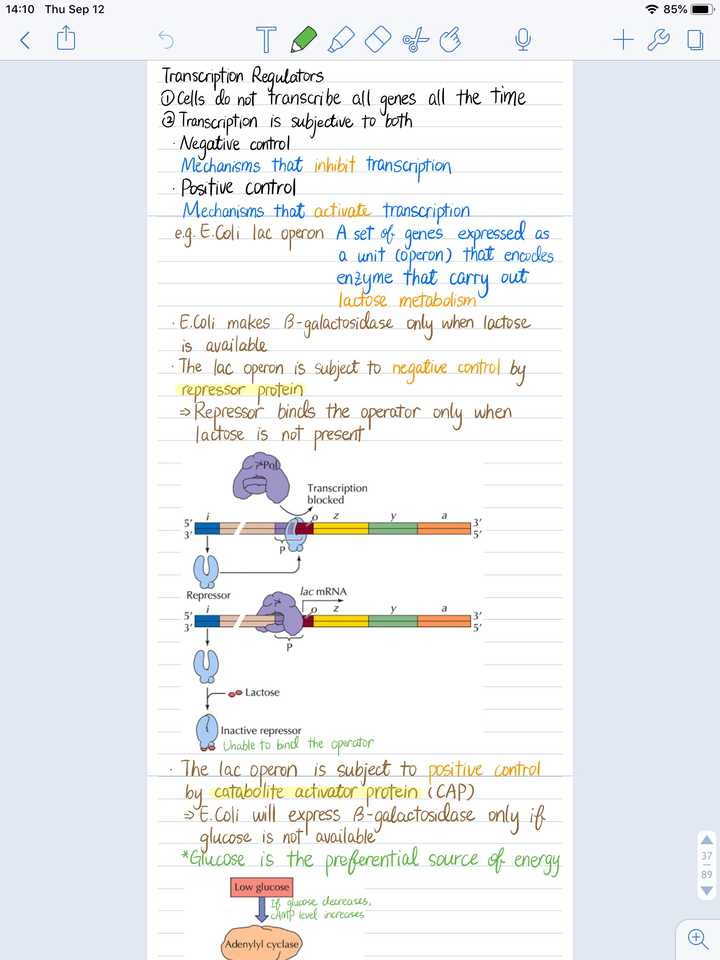 14:10 Thu Sep 12
85%
Transcription Regulators
① Cells do not transcribe all genes all the time
② Transcription is subjective to both
· Negative control
Mechanisms that inhibit transcription
· Positive control
Mechanisms that activate transcription
e.g. E.Coli lac operon A set of genes expressed as
a unit (operon) that encodes
enzyme that carry out
lactose metabolism
· E.Coli makes β-galactosidase only when lactose
is available
· The lac operon is subject to negative control by
repressor protein
⇒ Repressor binds the operator only when
lactose is not present
Pol
Transcription
blocked
i o z y a
5' 3'
3' 5'
P
Repressor
lac mRNA
i o z y a
5' 3'
3' 5'
P
Lactose
Inactive repressor
Unable to bind the operator
· The lac operon is subject to positive control
by catabolite activator protein (CAP)
⇒ E.Coli will express β-galactosidase only if
glucose is not available
*Glucose is the preferential source of energy
Low glucose
If glucose decreases,
cAMP level increases
Adenylyl cyclase
37
89